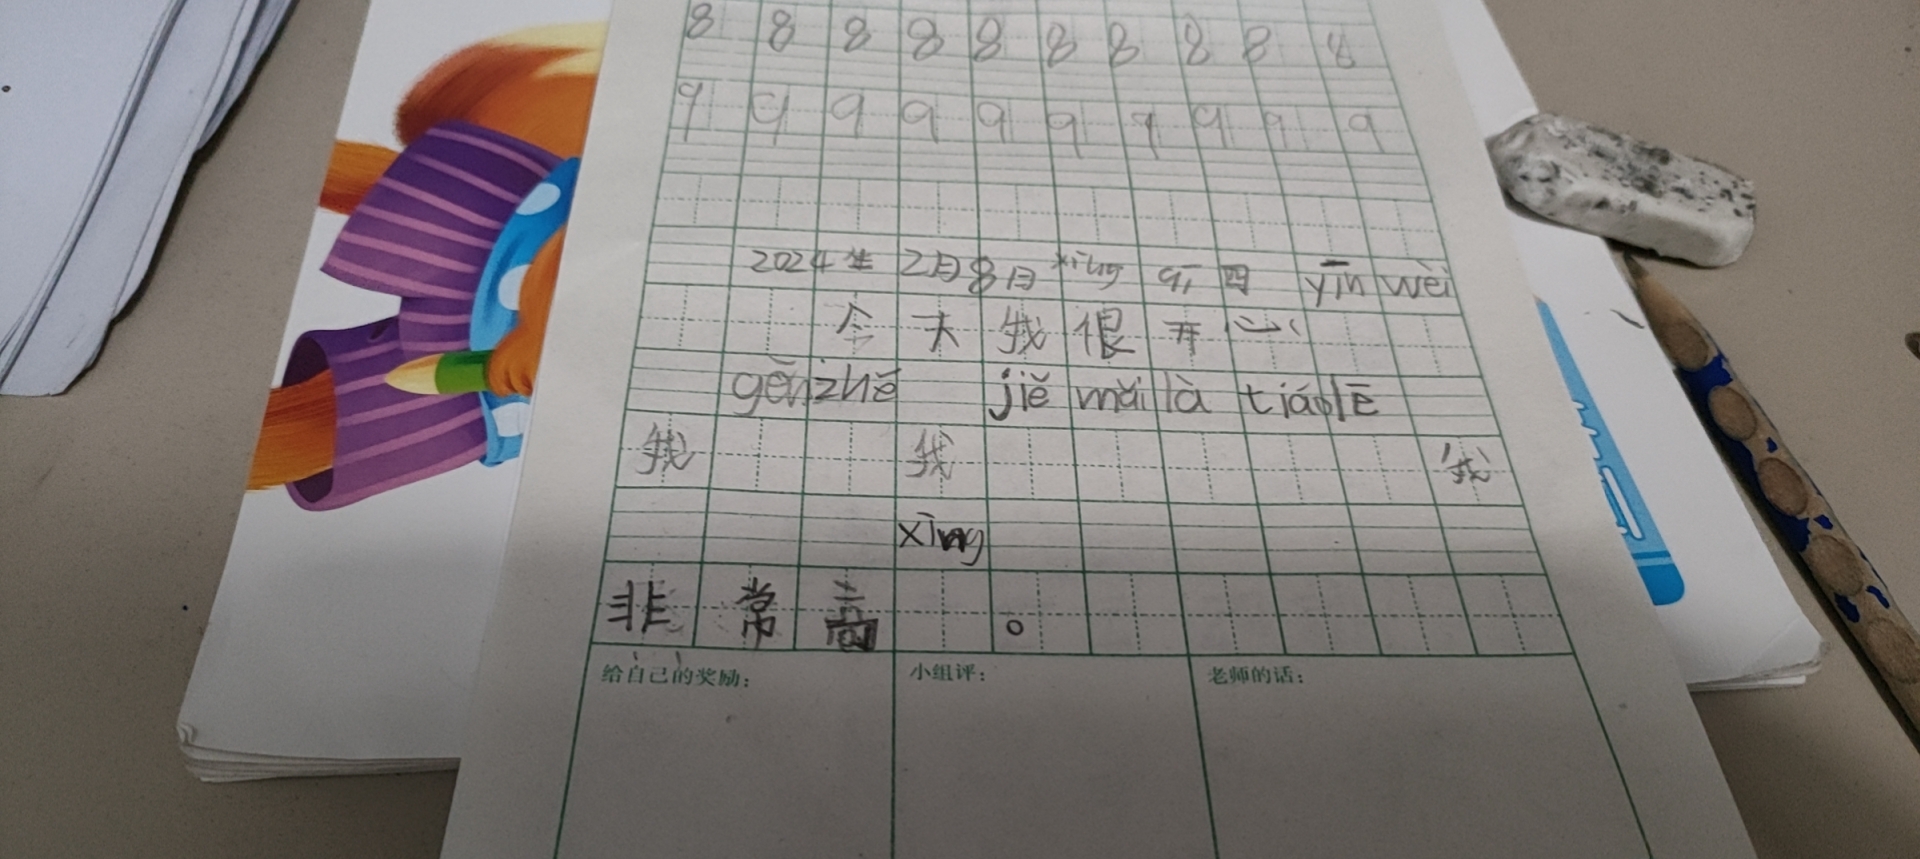 8 8 8 8 8 8 8 8 8 8
9 9 9 9 9 9 9 9 9 9
2024年2月8日 xīng qī 四 yīn wèi
今天我很开心
gēnzhē jiě mǎi là tiáo lē
我 我 我
xīng
非常高 。
给自己的奖励: 小组评: 老师的话: